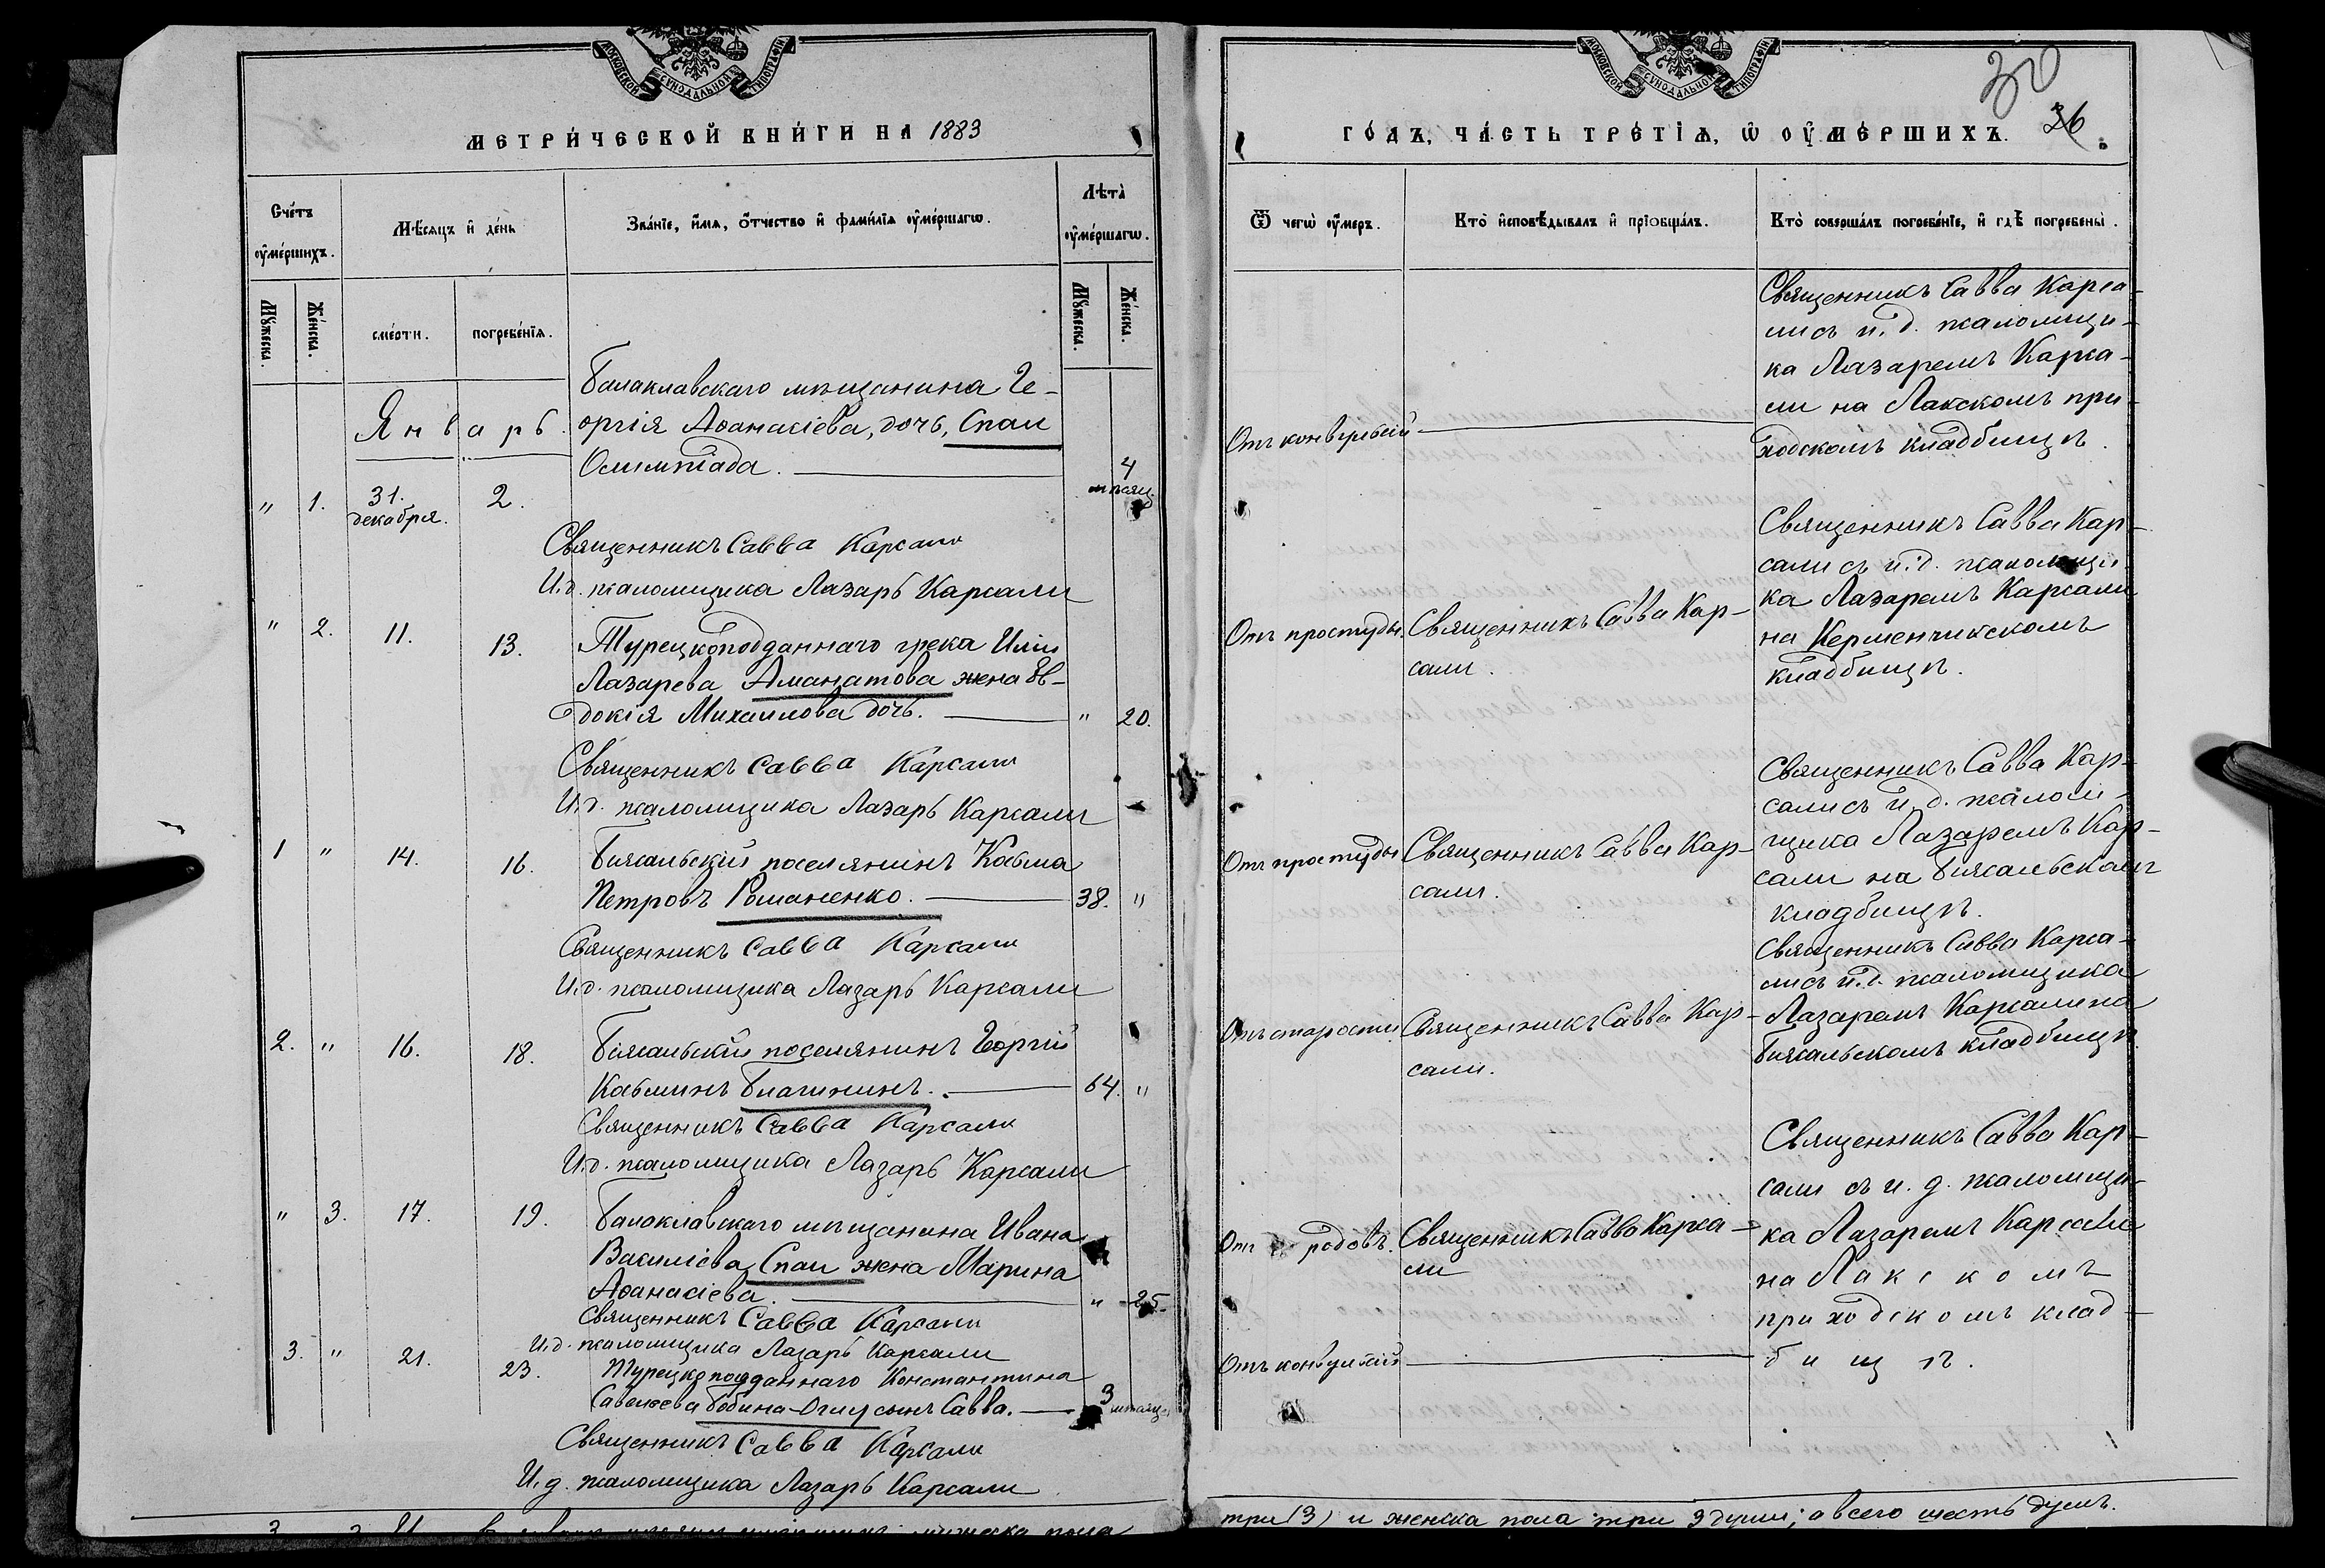 МОСКОВСКОЙ СѴНОДАЛЬНОЙ ТИПОГРАФІИ
МЕТРИ́ЧЕСКОЙ КНИ́ГИ НА 1883
Сче́тъ оу҆ме́ршихъ.
Мѣ́сяцъ и҆ де́нь
Зва́нїе, и҆́мѧ, ѻ҆́тчество и҆ фами́лїѧ оу҆ме́ршагѡ.
Лѣ́та оу҆ме́ршагѡ.
Мꙋ́жеска.
Же́нска.
сме́рти.
погребе́нїѧ.
Мꙋ́жеска.
Же́нска.
Январь.
Балаклавскаго мѣщанина Ге-
оргія Аѳанасіева, дочь, Спаи
Олимпіада.
4
мѣсяц.
" 1. 31. декабря. 2.
Священникъ Савва Карсали
И.д. псаломщика Лазарь Карсали
" 2. 11. 13. Турецкоподданнаго грека Иліи
Лазарева Аманатова жена Ев-
докія Михаилова дочь. " 20.
Священникъ Савва Карсали
И.д. псаломщика Лазарь Карсали
1 " 14. 16. Біясальскій поселянинъ Косьма
Петровъ Романенко. 38. "
Священникъ Савва Карсали
И.д. псаломщика Лазарь Карсали
2. " 16. 18. Біясальскій поселянинъ Георгій
Косьминъ Благининъ. 64. "
Священникъ Савва Карсали
И.д. псаломщика Лазарь Карсали
" 3. 17. 19. Балаклавскаго мѣщанина Ивана
Василіева Спаи жена Марина
Аѳанасіева. " 25.
Священникъ Савва Карсали
И.д. псаломщика Лазарь Карсали
3. " 21. 23. Турецкоподданнаго Константина
Савелева -Оглу сынъ Савва. 3 мѣсяц.
Священникъ Савва Карсали
И.д. псаломщика Лазарь Карсали
мужеска пола
МОСКОВСКОЙ СѴНОДАЛЬНОЙ ТИПОГРАФІИ
30
36
ГО́ДЪ, ЧА́СТЬ ТРЕ́ТЇѦ, Ѡ ОУ҆МЕ́РШИХЪ.
Ѿ чегѡ̀ оу҆́меръ.
Кто̀ и҆сповѣ́дывалъ и҆ прїѡбща́лъ.
Кто̀ соверша́лъ погребе́нїе, и҆ гдѣ̀ погребены̀.
Священникъ Савва Карса-
ли съ и.д. псаломщи-
ка Лазаремъ Карса-
ли на Лакскомъ при-
ходскомъ кладбищѣ.
Отъ конвульсій
Священникъ Савва Кар-
сали съ и.д. псаломщи-
ка Лазаремъ Карсали
на Керменчикскомъ
кладбищѣ.
Отъ простуды. Священникъ Савва Кар-
сали.
Священникъ Савва Кар-
сали съ и.д. псалом-
щика Лазаремъ Кар-
сали на Біясальскомъ
кладбищѣ.
Отъ простуды Священникъ Савва Кар-
сали.
Священникъ Савва Карса-
ли съ и.д. псаломщика
Лазаремъ Карсали на
Біясальскомъ кладбищѣ
Отъ старости. Священникъ Савва Кар-
сали.
Священникъ Савва Кар-
сали съ и.д. псаломщи-
ка Лазаремъ Карсали
на Лакскомъ
приходскомъ клад-
бищѣ.
Отъ родовъ. Священникъ Савва Карса-
ли
Отъ конвульсій
три (3) и женска пола три 3 души; а всего шесть душъ.